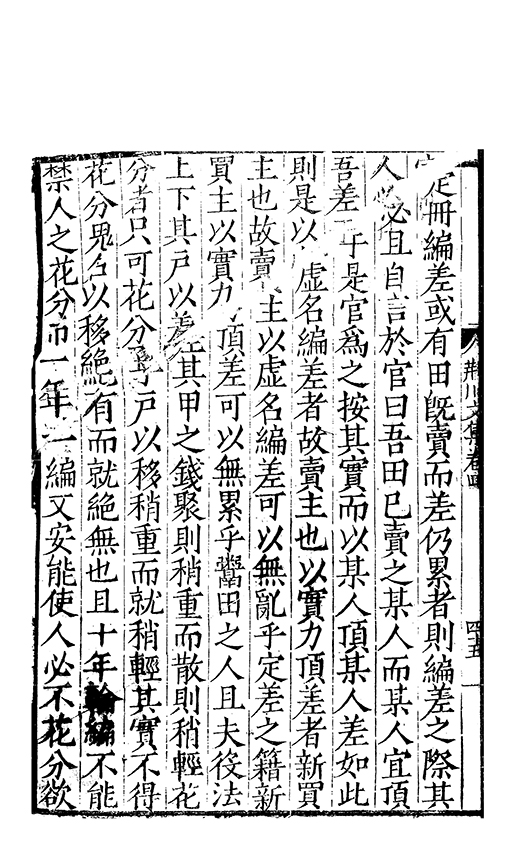 定冊編差或有田旣賣而差仍累者則編差之際其
人必且自言於官曰吾田已賣之某人而某人宜頂
吾差于是官爲之按其實而以某人頂某人差如此
則是以虛名編差者故賣主也以實力頂差者新買
主也故賣主以虛名編差可以無亂乎定差之籍新
買主以實力頂差可以無累乎鬻田之人且夫役法
上下其戸以差其甲之錢聚則稍重而散則稍輕花
分者只可花分戸以移稍重而就稍輕其實不得
花分鬼名以移絶有而就絶無也且十年輪編不能
禁人之花分而一年一編又安能使人必不花分欲
荆川文集卷四
四五